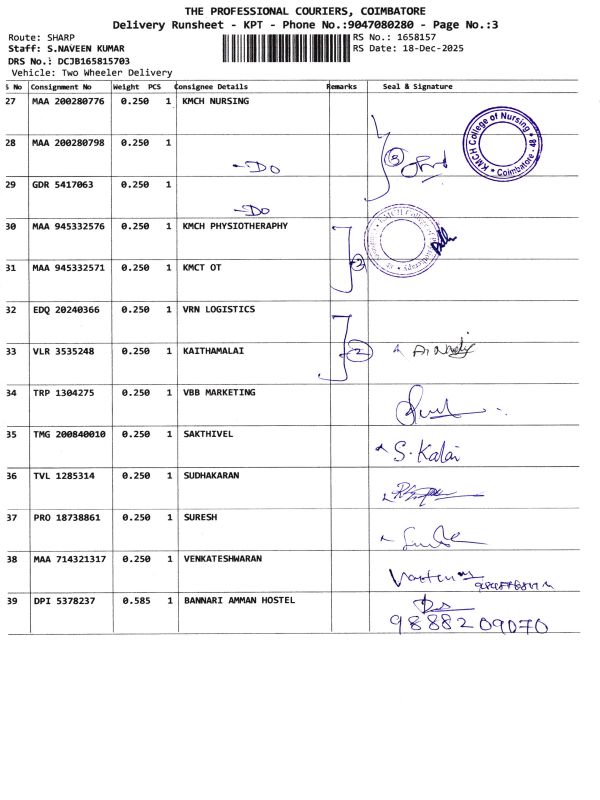 THE PROFESSIONAL COURIERS, COIMBATORE
Delivery Runsheet - KPT - Phone No.:9047080280 - Page No.:3
Route: SHARP
RS No.: 1658157
Staff: S.NAVEEN KUMAR
RS Date: 18-Dec-2025
DRS No.: DCJB165815703
Vehicle: Two Wheeler Delivery
S No Consignment No Weight PCS Consignee Details Remarks Seal & Signature
27 MAA 200280776 0.250 1 KMCH NURSING
KMCH College of Nursing * Coimbatore - 48 *
28 MAA 200280798 0.250 1
-Do
3
29 GDR 5417063 0.250 1
-Do
30 MAA 945332576 0.250 1 KMCH PHYSIOTHERAPHY
2
31 MAA 945332571 0.250 1 KMCT OT
32 EDQ 20240366 0.250 1 VRN LOGISTICS
33 VLR 3535248 0.250 1 KAITHAMALAI 2
34 TRP 1304275 0.250 1 VBB MARKETING
35 TMG 200840010 0.250 1 SAKTHIVEL
S. Kalai
36 TVL 1285314 0.250 1 SUDHAKARAN
37 PRO 18738861 0.250 1 SURESH
38 MAA 714321317 0.250 1 VENKATESHWARAN
39 DPI 5378237 0.585 1 BANNARI AMMAN HOSTEL
98882 09070